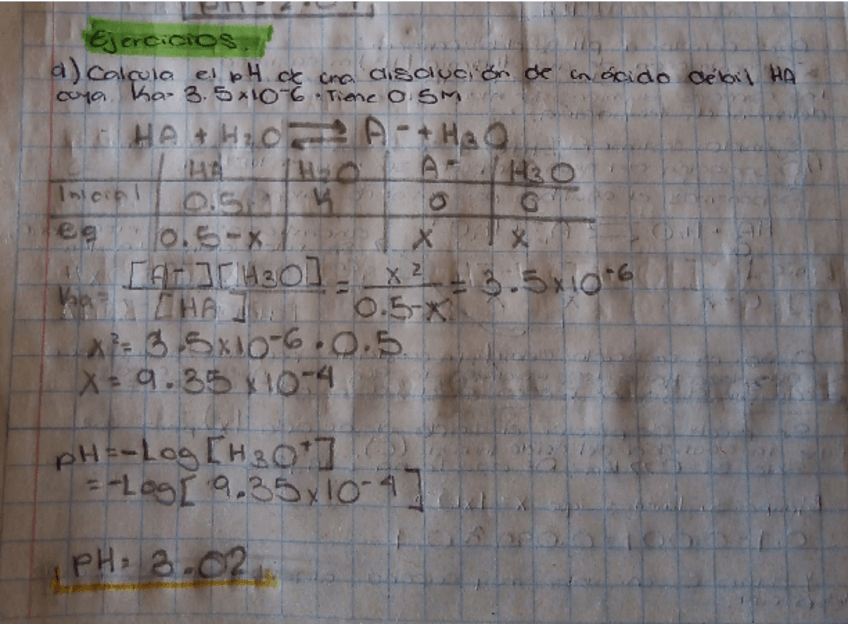 pH = 2.04
Ejercicios.
a) Calcula el pH de una disolución de un ácido débil HA
cuya Ka= 3.5x10-6. Tiene 0.5M
HA + H2O ⇌ A- + H3O
HA H2O A- H3O
Inicial 0.5 0 0
eq 0.5-x x x
Ka= [A-][H3O] / [HA] = x2 / 0.5-x = 3.5x10-6
x2= 3.5x10-6 · 0.5
x= 9.35 x10-4
pH=-Log[H3O+]
=-Log[ 9.35x10-4]
pH= 3.02